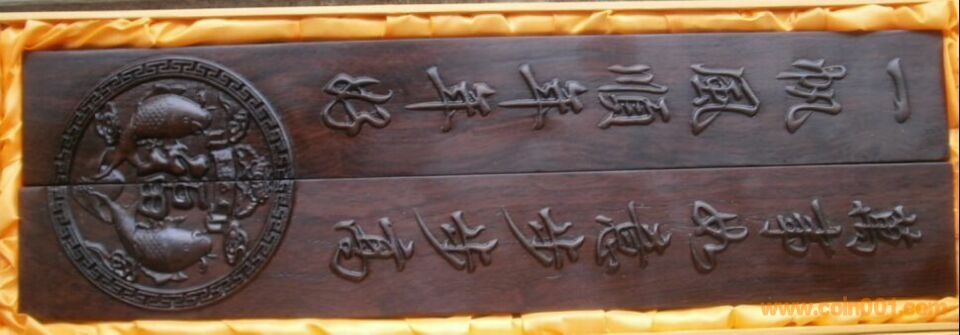 一帆風順年年好
萬事如意步步高
www.coin001.com